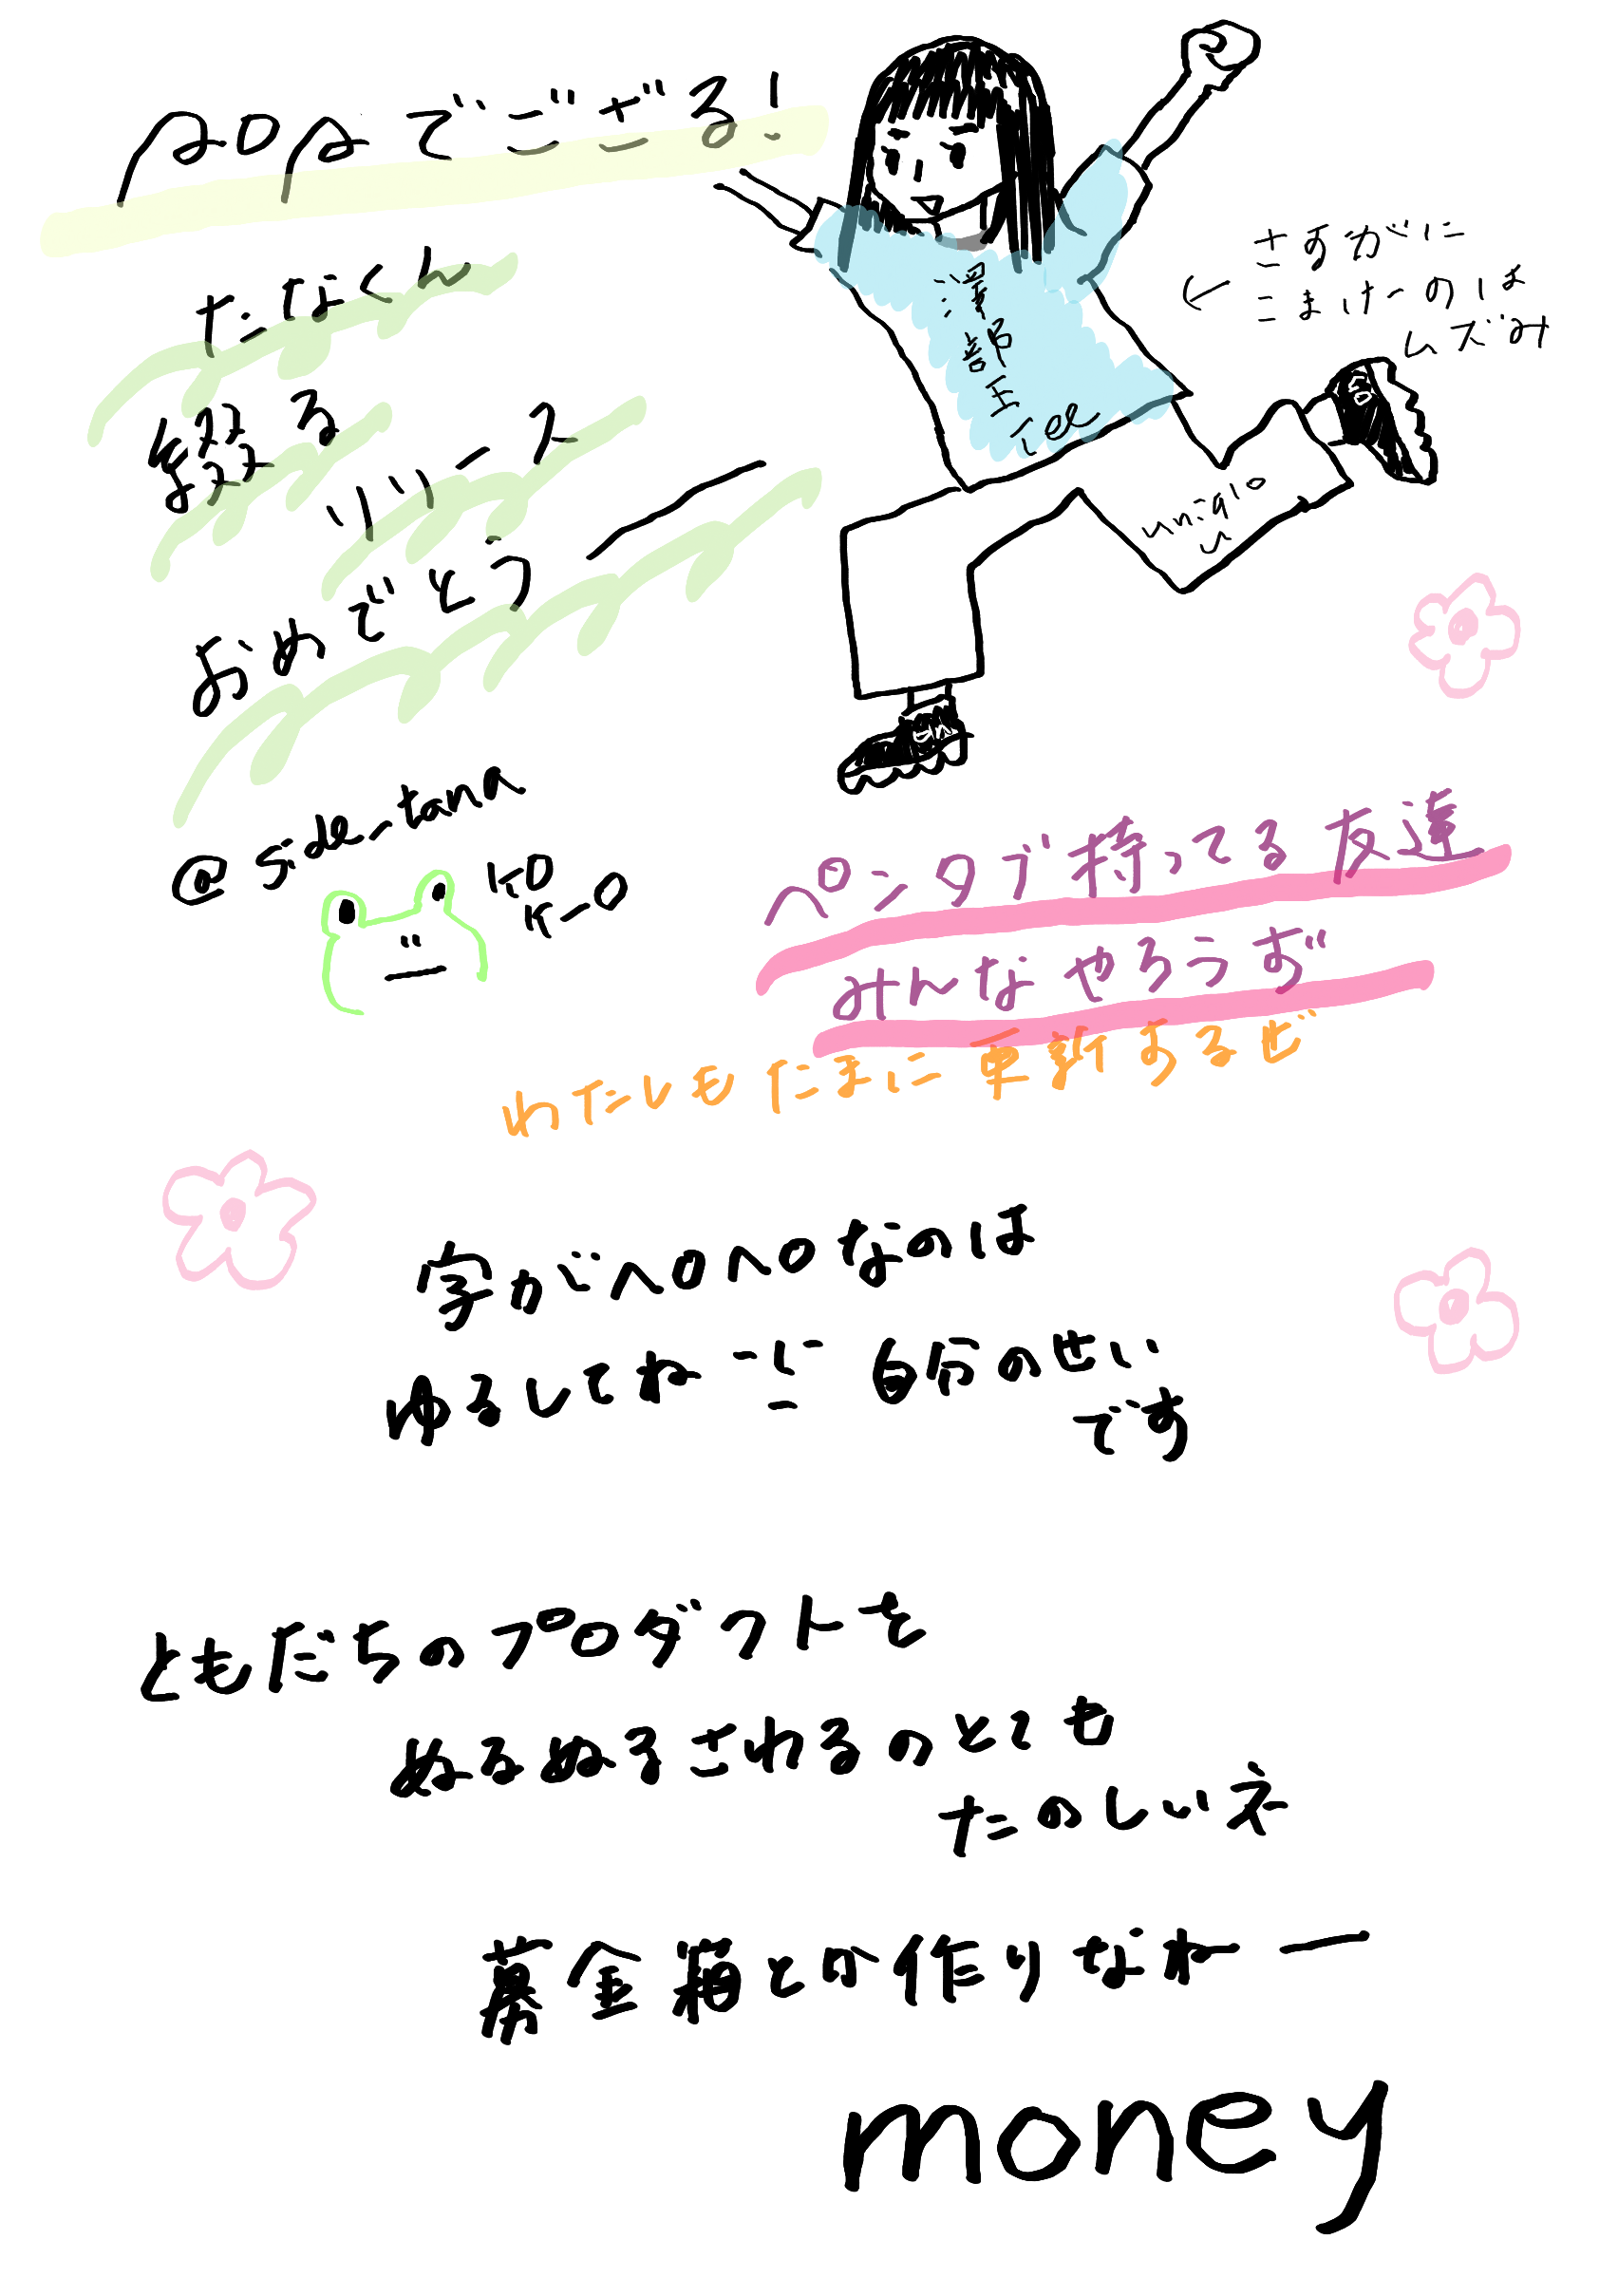 でござる!
たなくん
綴る
リリース
おめでとうー
@side_tana
さすがに
こまけーのは
ムズみ
←
澤部王
Tee
uniqlo
U
ペンタブ持ってる友達
みんなやろうず
わたしもたまに更新するぜ
字がヘロヘロなのは
ゆるしてね 自分のせい
です
ともだちのプロダクトを
ぬるぬるされるのとても
たのしいネ
募金箱とか作りなねー
money